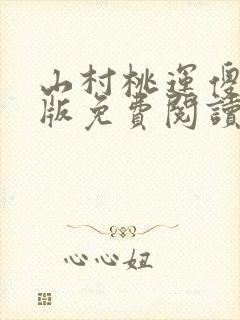 山村桃運傻
版免費閱讀
心心妞